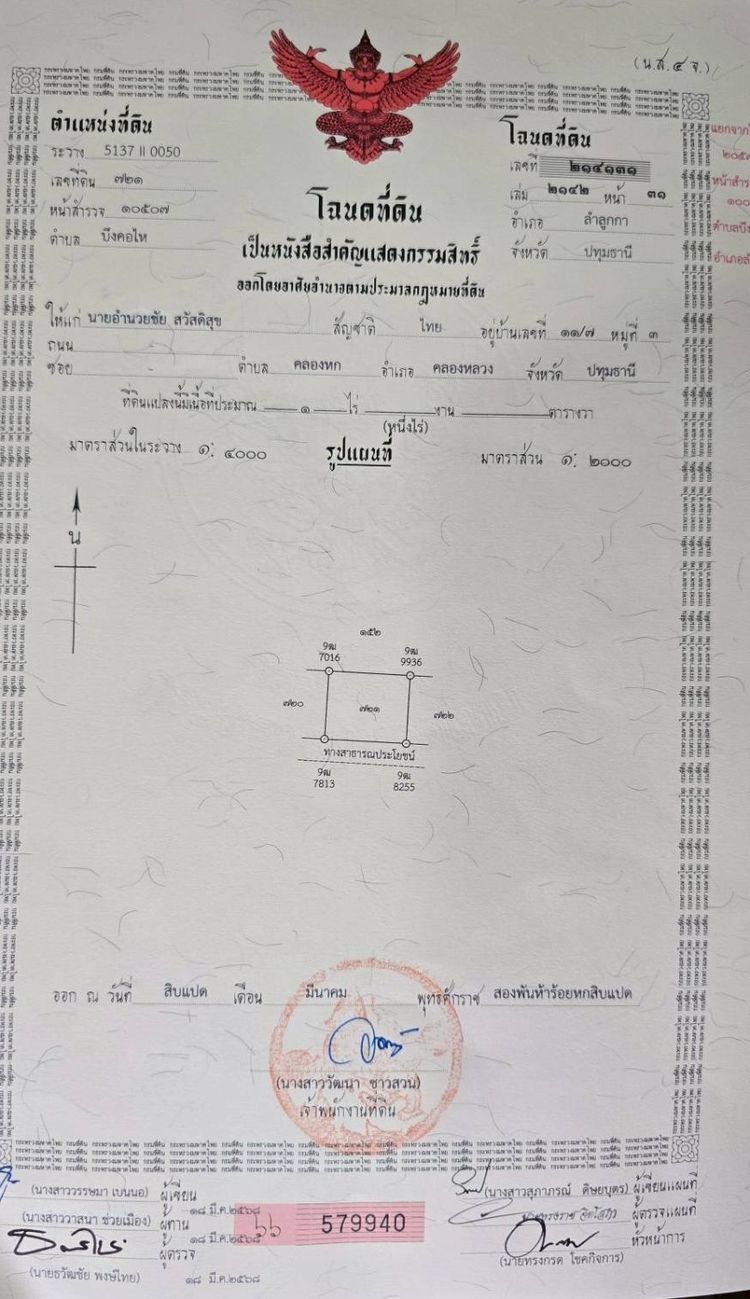 (น.ส. ๔ จ.)
ตำแหน่งที่ดิน
ระวาง 5137 II 0050
เลขที่ดิน ๗๒๑
หน้าสำรวจ ๑๐๕๐๗
ตำบล บึงคอไห
โฉนดที่ดิน
เลขที่ ๒๑๔๑๓๑
เล่ม ๒๑๔๒ หน้า ๓๑
อำเภอ ลำลูกกา
จังหวัด ปทุมธานี
แยกจาก
หน้าสำร
ตำบลบึง
โฉนดที่ดิน
เป็นหนังสือสำคัญแสดงกรรมสิทธิ์
ออกโดยอาศัยอำนาจตามประมวลกฎหมายที่ดิน
ให้แก่ นายอำนวยชัย สวัสดิสุข สัญชาติ ไทย อยู่บ้านเลขที่ ๑๑/๗ หมู่ที่ ๓
ถนน -
ซอย - ตำบล คลองหก อำเภอ คลองหลวง จังหวัด ปทุมธานี
ที่ดินแปลงนี้มีเนื้อที่ประมาณ ๑ ไร่ งาน ตารางวา
(หนึ่งไร่)
มาตราส่วนในระวาง ๑: ๔๐๐๐ รูปแผนที่ มาตราส่วน ๑: ๒๐๐๐
น
๑๕๒
9ฒ 9ฒ
7016 9936
๗๒๐ ๗๒๑ ๗๒๒
ทางสาธารณประโยชน์
9ฒ 9ฒ
7813 8255
ออก ณ วันที่ สิบแปด เดือน มีนาคม พุทธศักราช สองพันห้าร้อยหกสิบแปด
(นางสาววัฒนา ชาวสวน)
เจ้าพนักงานที่ดิน
(นางสาววรรษมา เบนนอ) ผู้เขียน
๑๘ มี.ค.๒๕๖๘
(นางสาววาสนา ช่วยเมือง) ผู้ทาน
๑๘ มี.ค.๒๕๖๘
ผู้ตรวจ
(นายธวัฒชัย พงษ์ไทย) ๑๘ มี.ค.๒๕๖๘
๖๖ 579940
(นางสาวสุภาภรณ์ ดิษยบุตร) ผู้เขียนแผนที่
ผู้ตรวจแผนที่
หัวหน้าการ
(นายทรงกรด โชคกิจการ)